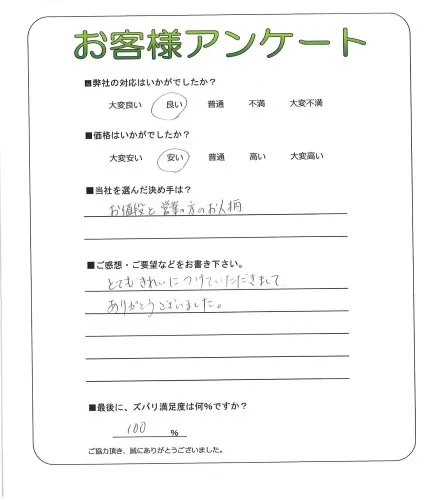 お客様アンケート
■弊社の対応はいかがでしたか？
大変良い 良い 普通 不満 大変不満
■価格はいかがでしたか？
大変安い 安い 普通 高い 大変高い
■当社を選んだ決め手は？
お値段と営業の方のお人柄
■ご感想・ご要望などをお書き下さい。
とてもきれいにつけていただきまして
ありがとうございました。
■最後に、ズバリ満足度は何%ですか？
100 %
ご協力頂き、誠にありがとうございました。